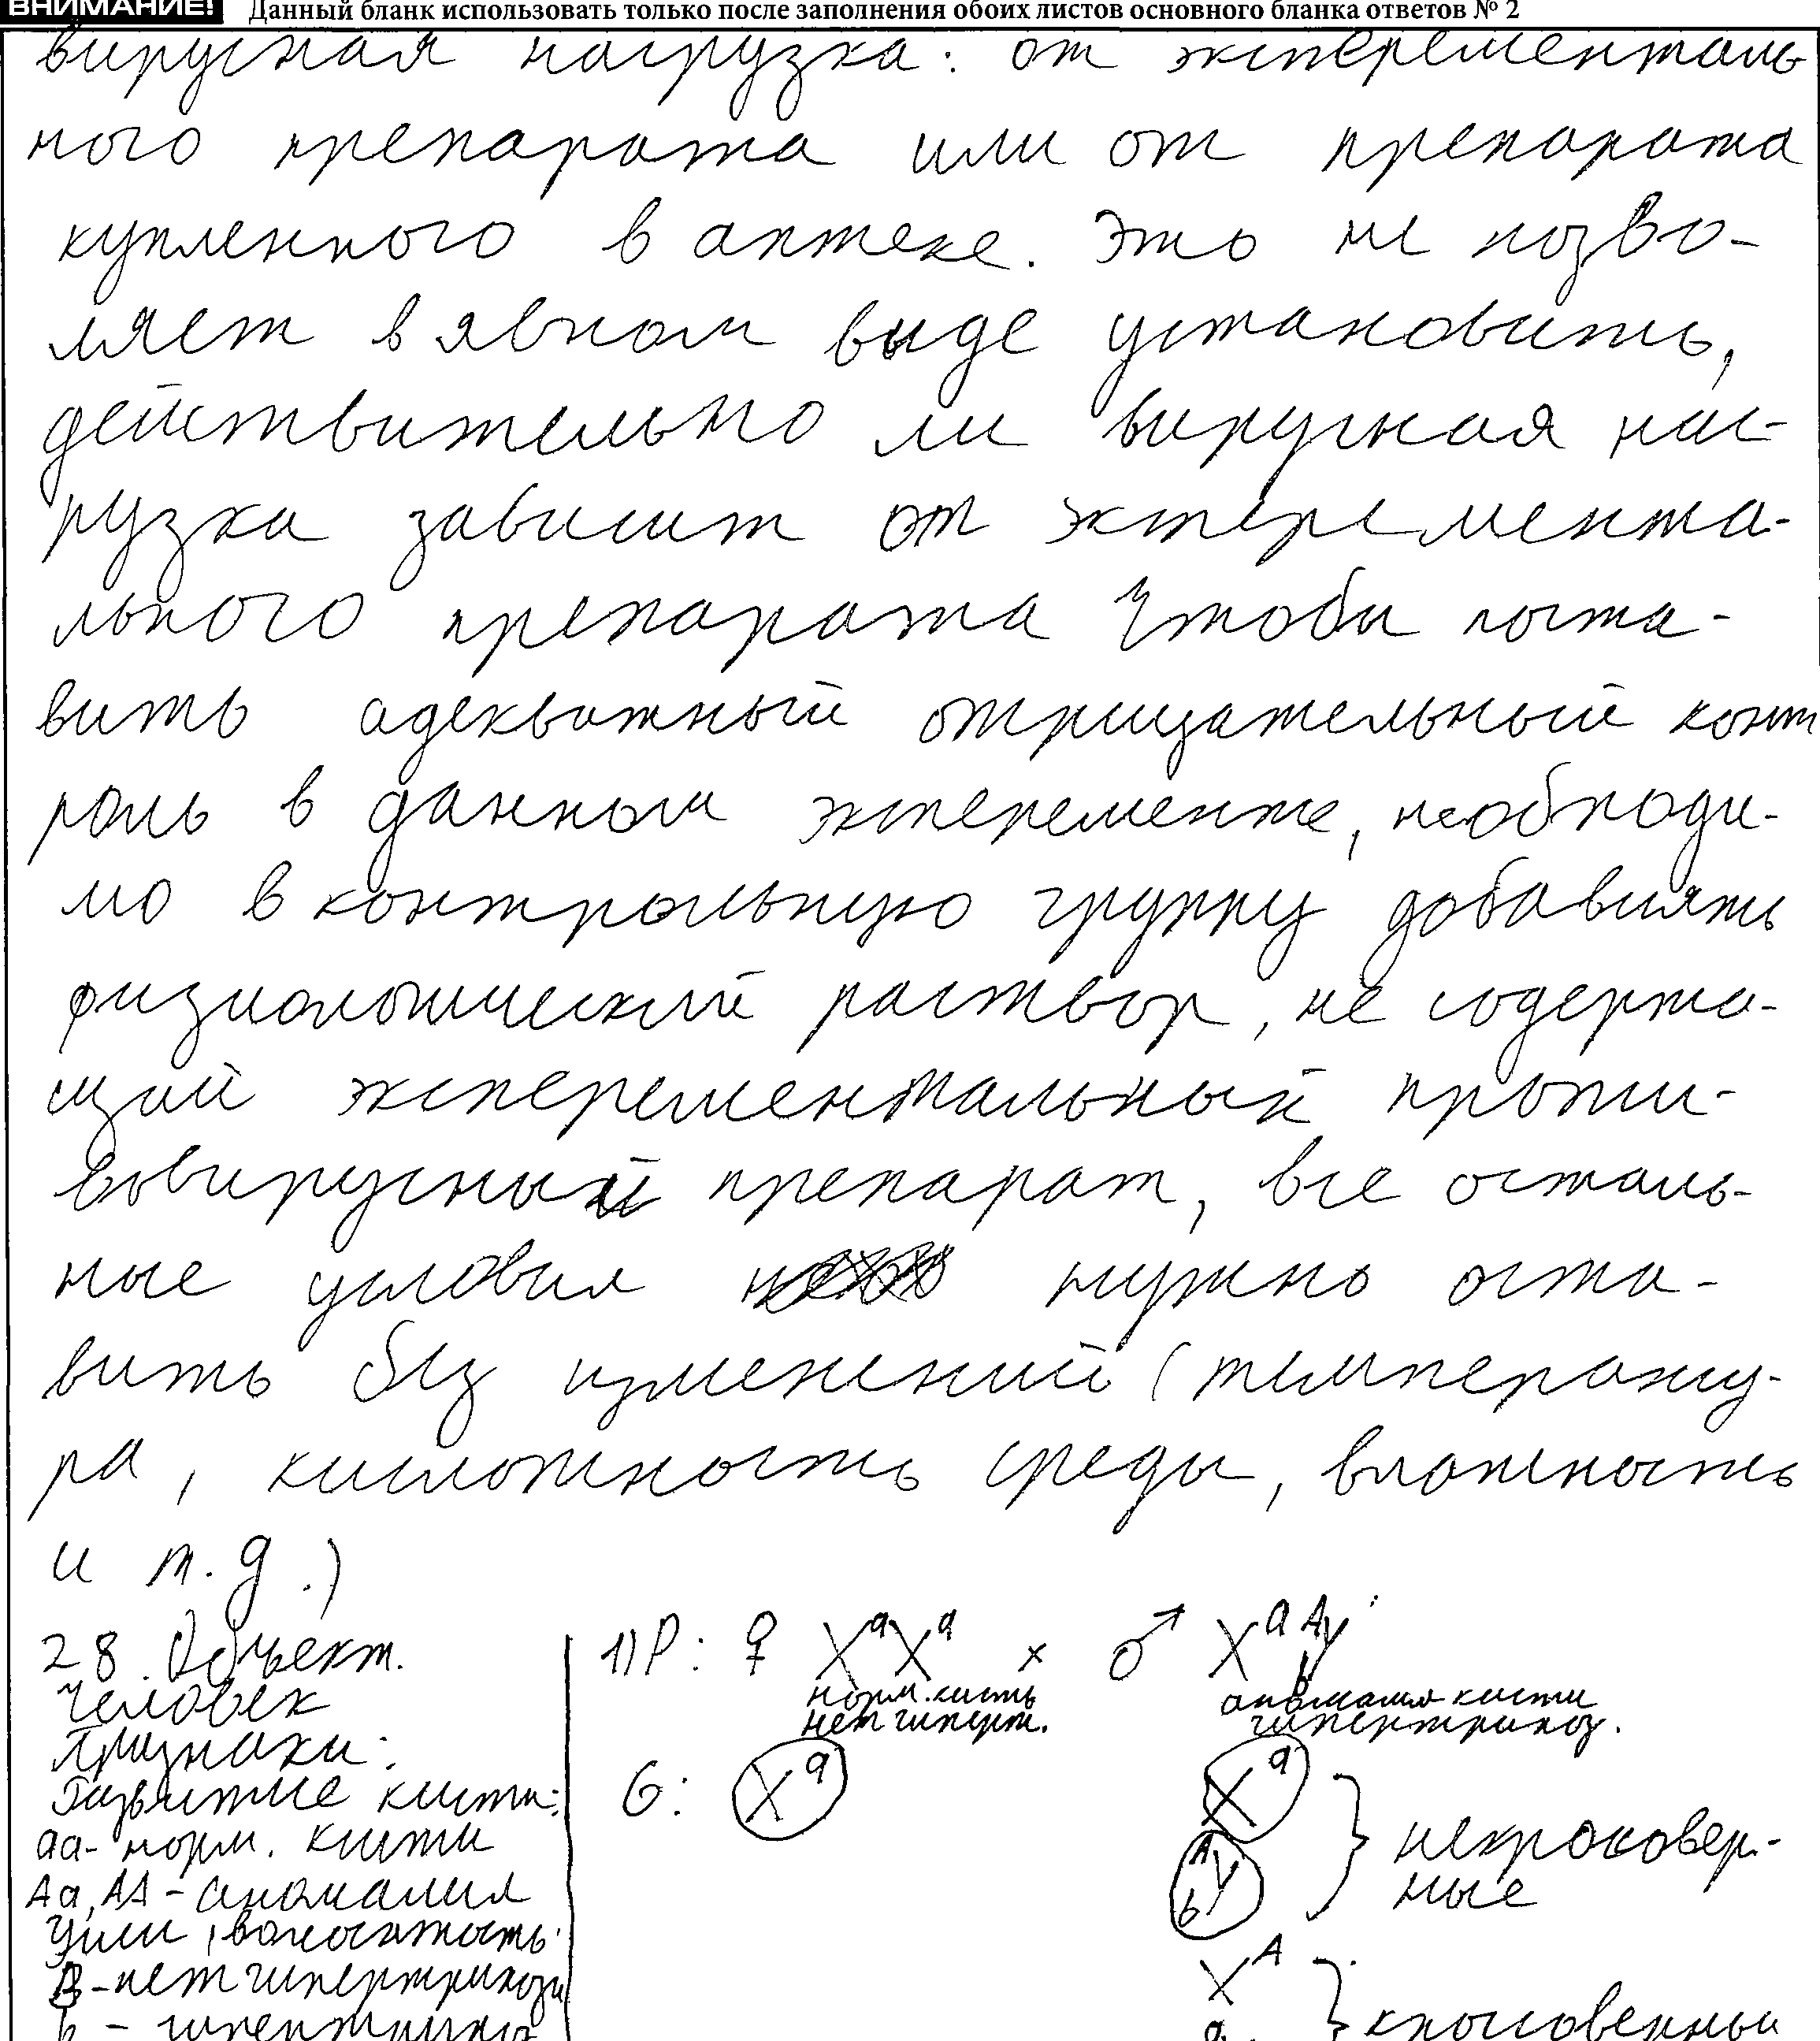 ВНИМАНИЕ! Данный бланк использовать только после заполнения обоих листов основного бланка ответов № 2
вирусная нагрузка: от эксперементаль
ного препарата или от препарата
купленного в аптеке. Это не позво-
ляет в явном виде установить,
действительно ли вирусная наг-
рузка зависит от эксперемента-
льного препарата Чтобы поста-
вить адекватный отрицательный конт
роль в данном эксперементе, необходи-
мо в контрольную группу добавлять
физиологический раствор, не содержа-
щий эксперементальный проти-
вовирусный препарат, все осталь-
ные условия нужно оста-
вить без изменений (температу-
ра, кислотность среды, влажность
и т.д.)
28. Объект.
Человек
Признаки:
Развитие кисти:
аа- норм. кисти
Аа, АА - аномалия
волосатость:
B - нет гипертрихоза
b - гипертрихоз
1) P: ♀ XᵃXᵃ × ♂ XᵃYᴬb
норм. кисть аномалия кисти
нет гиперт. гипертрихоз.
G: Xᵃ Xᵃ
Yᴬb } некроссовер-
ные
Xᴬ
} кроссоверный